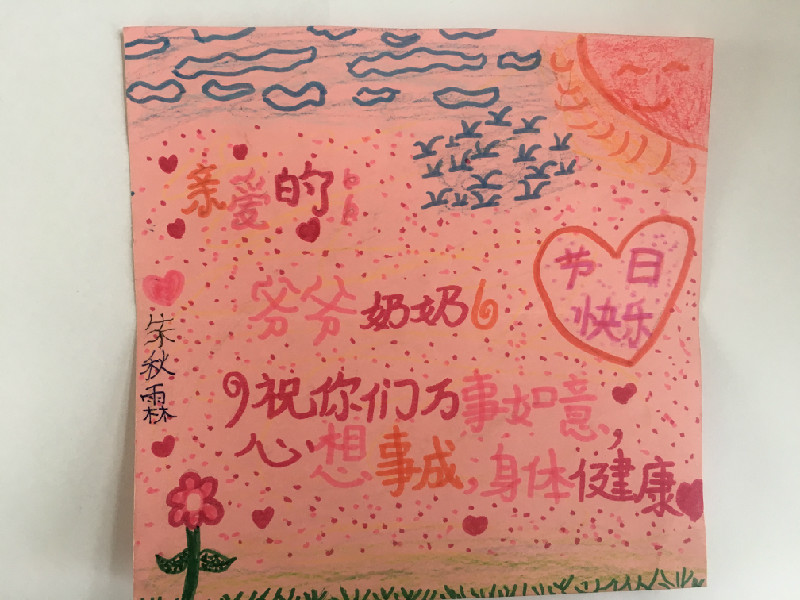 亲爱的:
爷爷奶奶6
节日
快乐
朱秋霖
9祝你们万事如意,
心想事成,身体健康